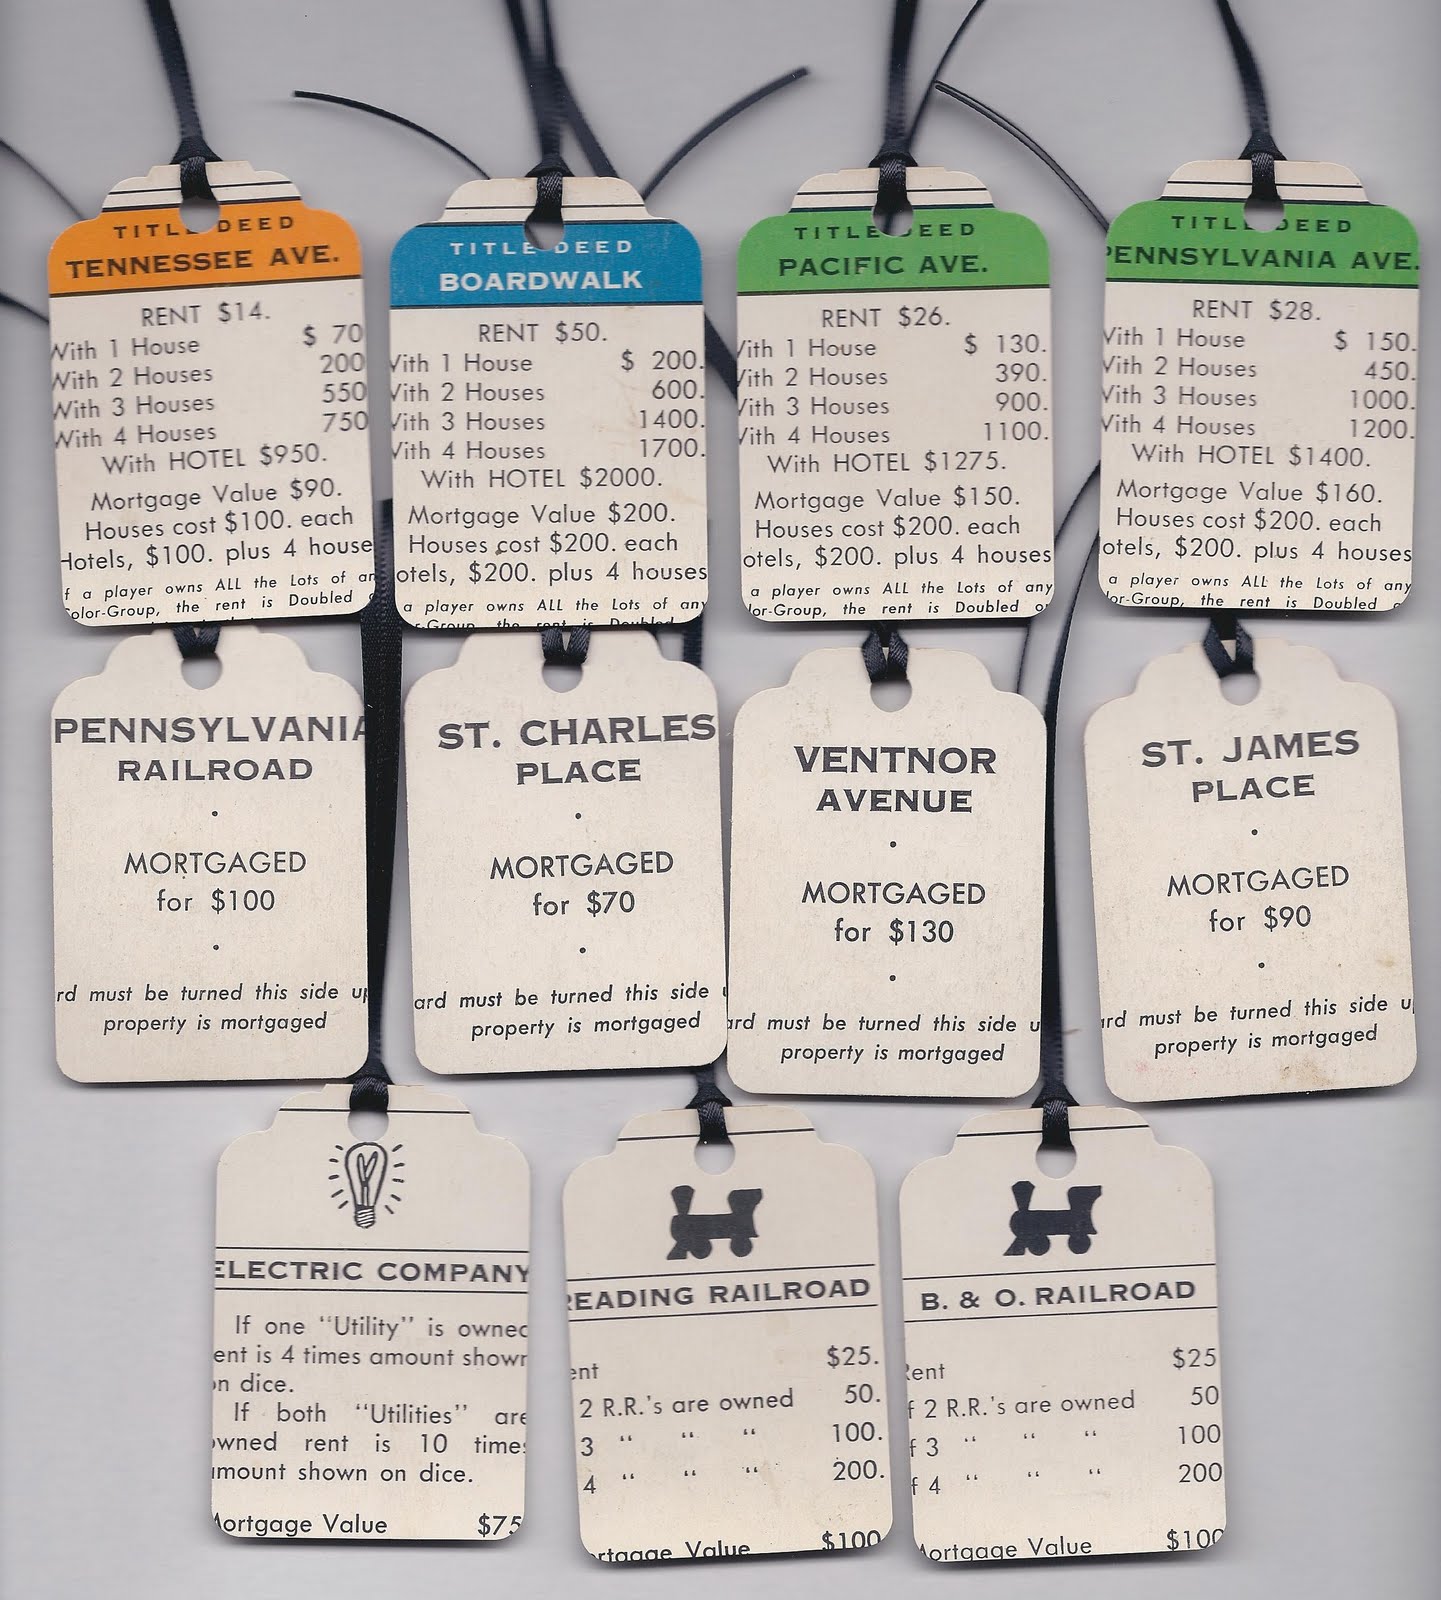 TITLE DEED
TENNESSEE AVE.
RENT $14.
With 1 House $ 70
With 2 Houses 200
With 3 Houses 550
With 4 Houses 750
With HOTEL $950.
Mortgage Value $90.
Houses cost $100. each
Hotels, $100. plus 4 house
f a player owns ALL the Lots of an
Color-Group, the rent is Doubled
TITLE DEED
BOARDWALK
RENT $50.
With 1 House $ 200.
With 2 Houses 600.
With 3 Houses 1400.
With 4 Houses 1700.
With HOTEL $2000.
Mortgage Value $200.
Houses cost $200. each
otels, $200. plus 4 houses
a player owns ALL the Lots of any
r-Group, the rent is Doubled
TITLE DEED
PACIFIC AVE.
RENT $26.
With 1 House $ 130.
With 2 Houses 390.
With 3 Houses 900.
With 4 Houses 1100.
With HOTEL $1275.
Mortgage Value $150.
Houses cost $200. each
otels, $200. plus 4 houses
a player owns ALL the Lots of any
lor-Group, the rent is Doubled o
TITLE DEED
PENNSYLVANIA AVE.
RENT $28.
With 1 House $ 150.
With 2 Houses 450.
With 3 Houses 1000.
With 4 Houses 1200.
With HOTEL $1400.
Mortgage Value $160.
Houses cost $200. each
otels, $200. plus 4 houses
a player owns ALL the Lots of any
lor-Group, the rent is Doubled o
PENNSYLVANIA
RAILROAD
•
MORTGAGED
for $100
•
rd must be turned this side up
property is mortgaged
ST. CHARLES
PLACE
•
MORTGAGED
for $70
•
ard must be turned this side
property is mortgaged
VENTNOR
AVENUE
•
MORTGAGED
for $130
•
ard must be turned this side u
property is mortgaged
ST. JAMES
PLACE
•
MORTGAGED
for $90
•
ard must be turned this side u
property is mortgaged
ELECTRIC COMPANY
If one "Utility" is owned
ent is 4 times amount shown
on dice.
If both "Utilities" are
owned rent is 10 times
amount shown on dice.
Mortgage Value $75
READING RAILROAD
ent $25.
2 R.R.'s are owned 50.
3 " " " 100.
4 " " " 200.
rtgage Value $100
B. & O. RAILROAD
Rent $25
f 2 R.R.'s are owned 50
f 3 " " " 100
f 4 " " " 200
Mortgage Value $100